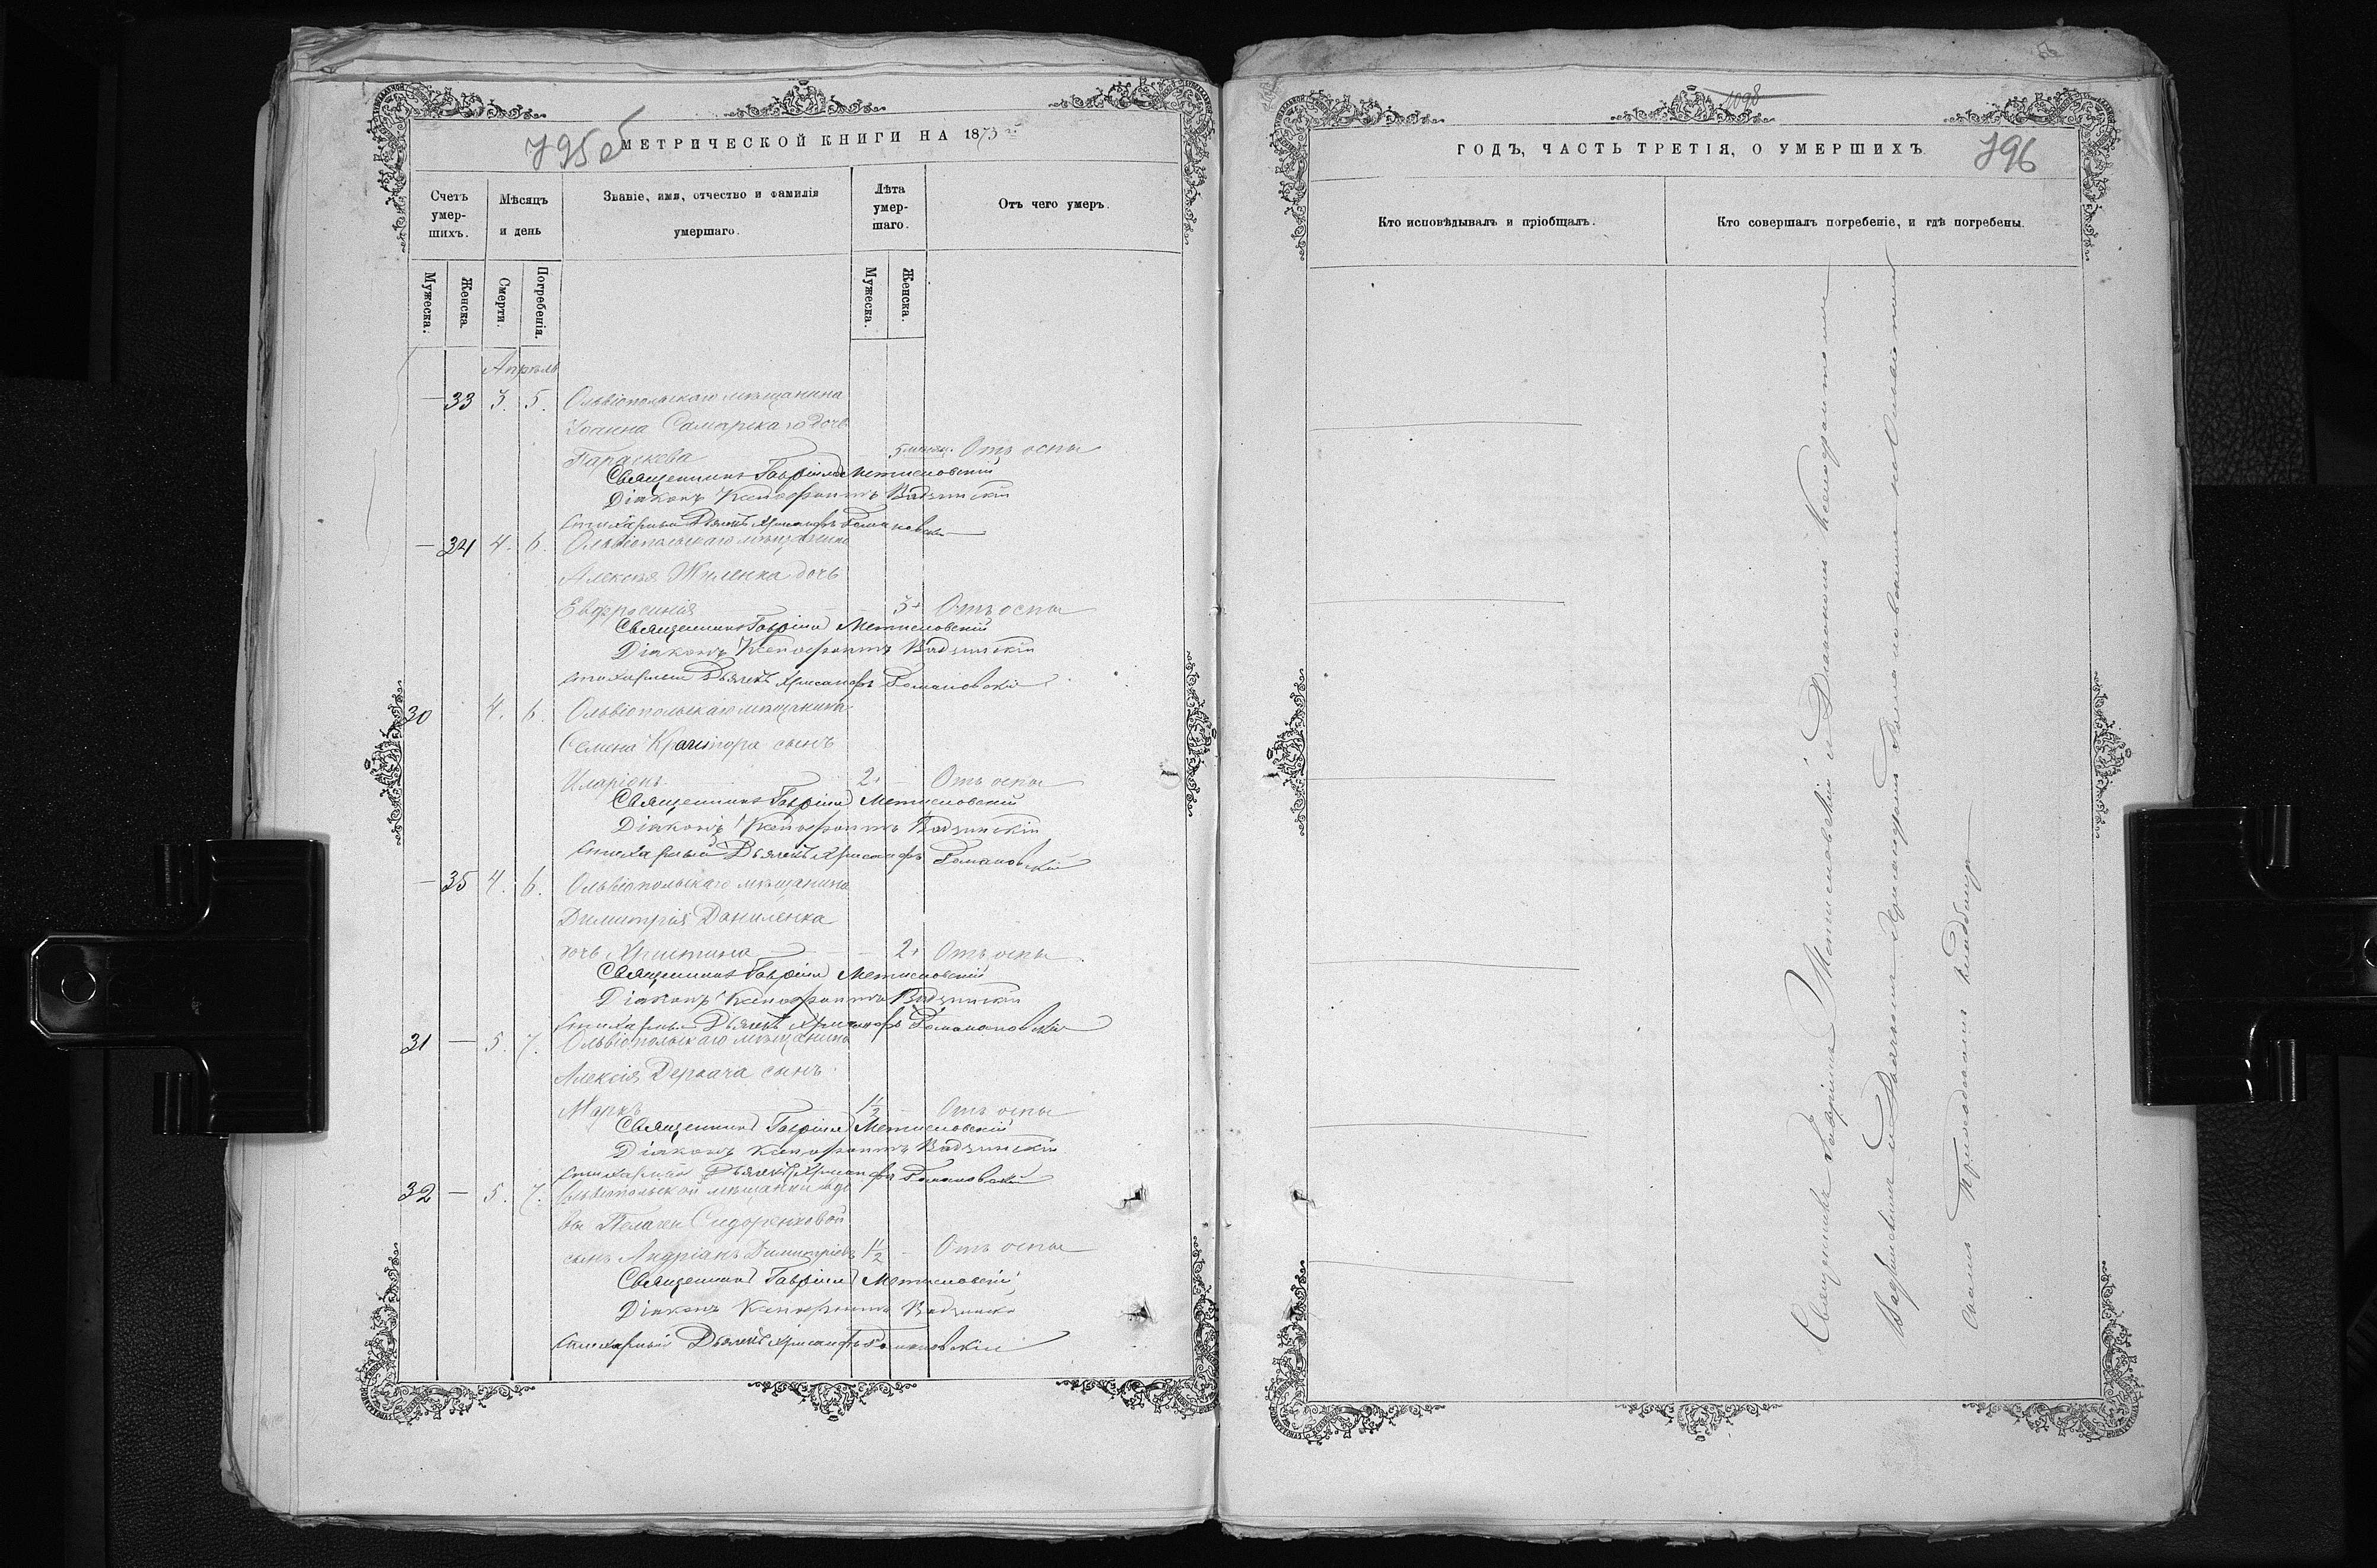 795 об
МЕТРИЧЕСКОЙ КНИГИ НА 1873
Счетъ умер-шихъ.
Мѣсяцъ и день
Званіе, имя, отчество и фамилія умершаго.
Лѣта умер-шаго.
Отъ чего умеръ.
Мужеска.
Женска.
Смерти.
Погребенія.
Мужеска.
Женска.
Апрѣль
— 33 3. 5. Ольвіопольскаго мѣщанина
Іоанна Самарскаго дочь
Параскева 5 мѣсяц. Отъ оспы
Священникъ Гавріилъ Метисловскій
Діаконъ Ксенофонтъ Вадзинскій
Стихарный Дьячекъ Хрисанфъ Романовскій
— 34 4. 6. Ольвіопольскаго мѣщанина
Алексѣя Жиленка дочь
Евфросинія 3 Отъ оспы
Священникъ Гавріилъ Метисловскій
Діаконъ Ксенофонтъ Вадзинскій
Стихарный Дьячекъ Хрисанфъ Романовскій
30 4. 6. Ольвіопольскаго мѣщанина
Семена сынъ
Иларіонъ 2 — Отъ оспы
Священникъ Гавріилъ Метисловскій
Діаконъ Ксенофонтъ Вадзинскій
Стихарный Дьячекъ Хрисанфъ Романовскій
— 35 4. 6. Ольвіопольскаго мѣщанина
Димитрія Даниленка
дочь Христина — 2 Отъ оспы
Священникъ Гавріилъ Метисловскій
Діаконъ Ксенофонтъ Вадзинскій
Стихарный Дьячекъ Хрисанфъ Романовскій
31 — 5. 7. Ольвіопольскаго мѣщанина
Алексія Деркача сынъ
Маркъ 1½ — Отъ оспы
Священникъ Гавріилъ Метисловскій
Діаконъ Ксенофонтъ Вадзинскій
Стихарный Дьячекъ Хрисанфъ Романовскій
32 — 5. 7. Ольвіопольской мѣщанки вдо
вы Пелагеи Сидоренковой
сынъ Андріанъ Димитріевъ 1½ — Отъ оспы
Священникъ Гавріилъ Метисловскій
Діаконъ Ксенофонтъ Вадзинскій
Стихарный Дьячекъ Хрисанфъ Романовскій
1098
ГОДЪ, ЧАСТЬ ТРЕТІЯ, О УМЕРШИХЪ
796
Кто исповѣдывалъ и пріобщалъ.
Кто совершалъ погребеніе, и гдѣ погребены.
Священникъ Гавріилъ Метисловскій съ Діакономъ Ксенофонтомъ
Вадзинскимъ и Дьячкомъ Хрисанфомъ Романовскимъ на Ольвіополь
скомъ Приходскомъ кладбищѣ